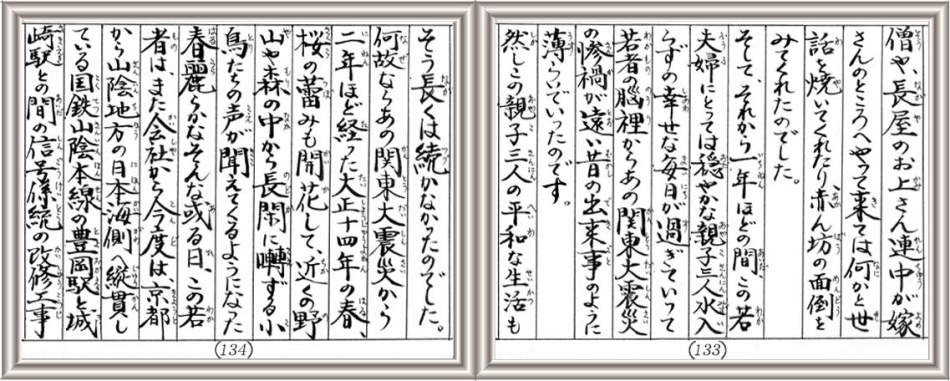 僧や、長屋のお上さん連中が嫁
さんのところへやって来ては何かと世
話を焼いてくれたり、赤ん坊の面倒を
みてくれたのでした。
そして、それから一年ほどの間、この若
夫婦にとっては穏やかな親子三人水入
らずの幸せな毎日が過ぎていって
若者の脳裡からあの関東大震災
の惨禍が遠い昔の出来事のように
薄らいでいったのです。
然しこの親子三人の平和な生活も
(133)
そう長くは続かなかったのでした。
何故ならあの関東大震災から
二年ほど経った大正十四年の春、
桜の蕾みも開花して、近くの野
山や森の中から長閑に囀ずる小
鳥たちの声が聞えてくるようになった
春麗らかなそんな或る日、この若
者は、また会社から今度は、京都
から山陰地方の日本海側へ縦貫し
ている国鉄山陰本線の豊岡駅と城
崎駅との間の信号係統の改修工事
(134)